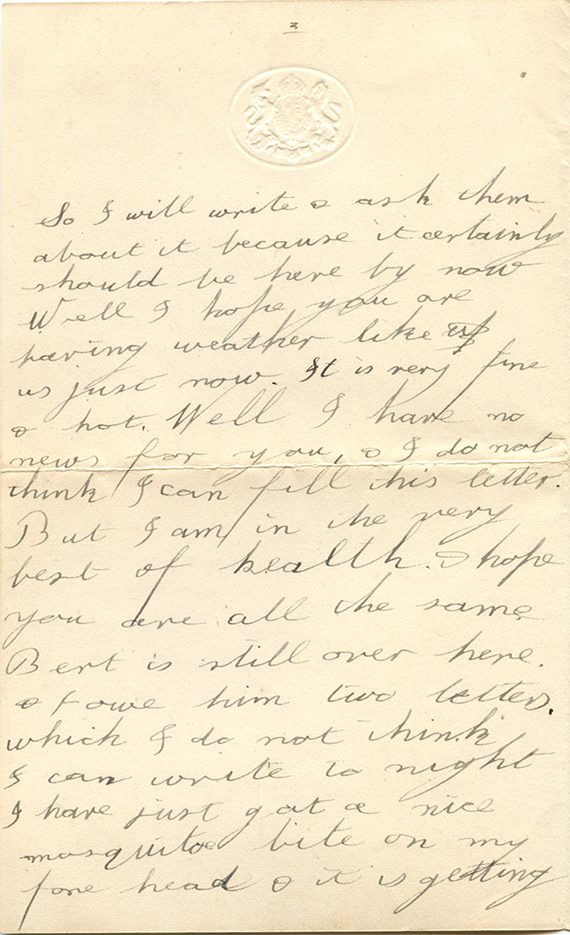 3
So I will write & ask them
about it because it certainly
should be here by now
Well I hope you are
having weather like
us just now. It is very fine
& hot. Well I have no
news for you, & I do not
think I can fill this letter.
But I am in the very
best of health. & hope
you are all the same
Bert is still over here.
& I owe him two letters.
which I do not think
I can write to night
I have just got a nice
mosquitoe bite on my
fore head & it is getting